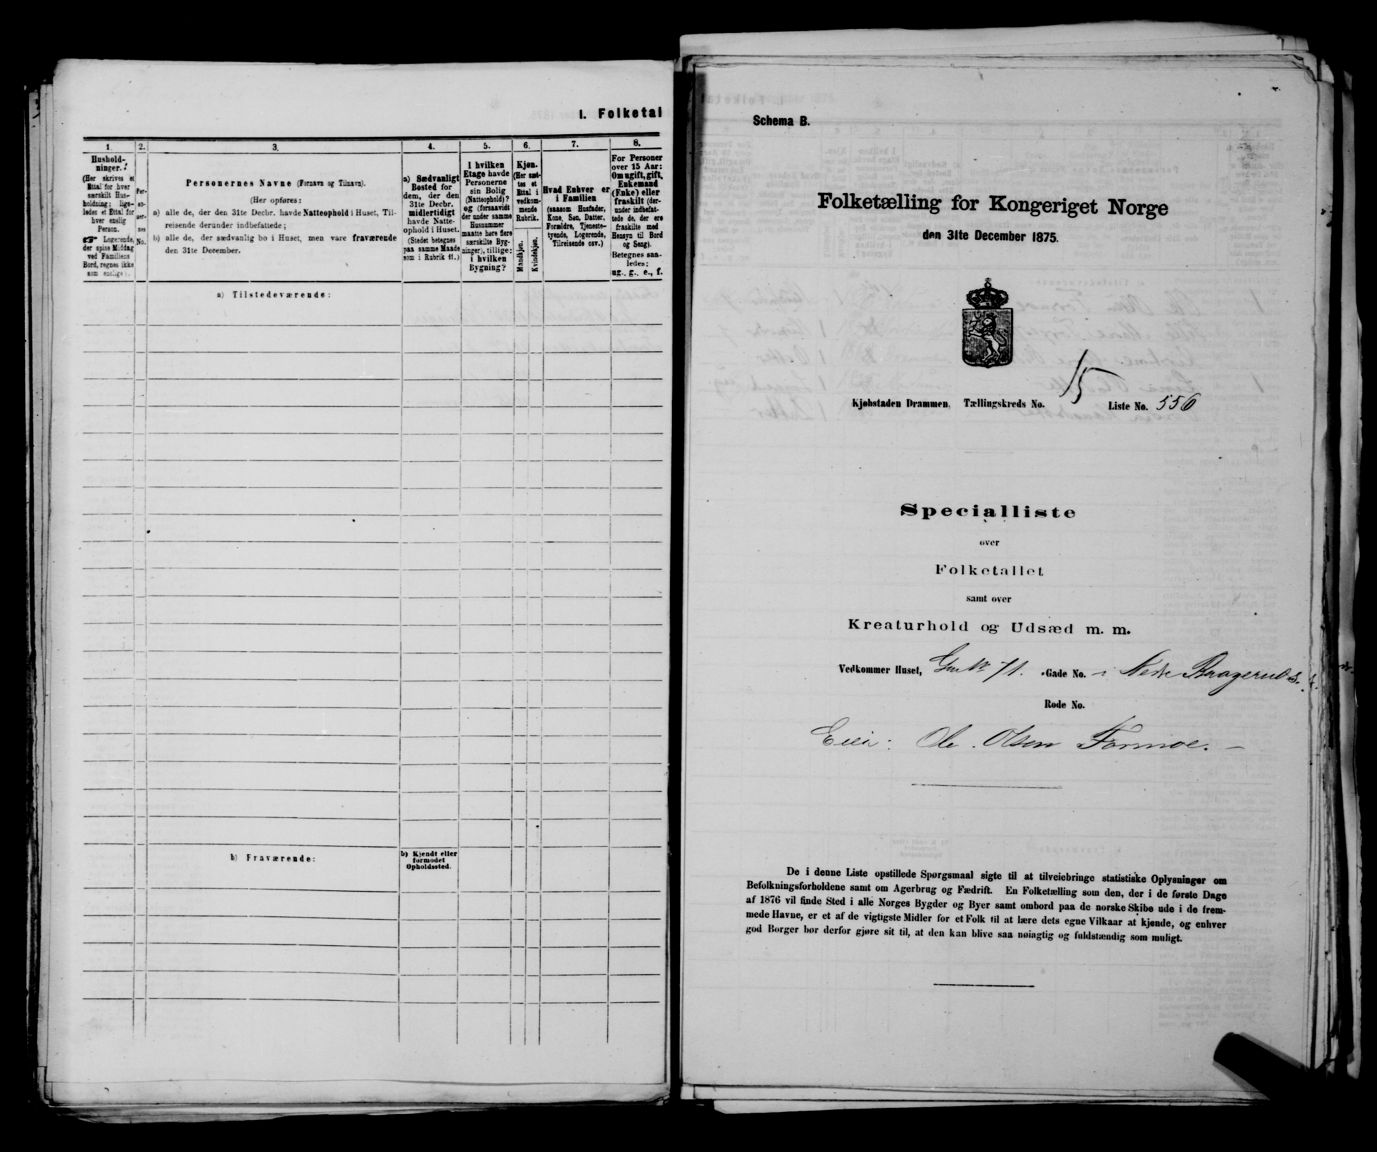 I. Folketal
1.
2.
3.
4.
5.
6.
7.
8.
Hushold-
ninger.
(Her skrives et
Ettal for hver
særskilt Hus-
holdning; lige-
ledes et Ettal for
hver enslig
Person.
☞ Logerende,
der spise Middag
ved Familiens
Bord, regnes ikke
som enslige).
Per-
so-
ner-
nes
No.
Personernes Navne (Fornavn og Tilnavn).
(Her opføres:
a) alle de, der den 31te Decbr. havde Natteophold i Huset, Til-
reisende derunder indbefattede;
b) alle de, der sædvanlig bo i Huset, men vare fraværende
den 31te December.
a) Sædvanligt
Bosted for
dem, der den
31te Decbr.
midlertidigt
havde Natte-
ophold i Huset.
(Stedet betegnes
paa samme Maade
som i Rubrik 11.)
I hvilken
Etage havde
Personerne
sin Bolig
(Natteophold)?
og (forsaavidt
der under samme
Husnummer
maatte høre flere
særskilte Byg-
ninger), tillige:
i hvilken
Bygning?
Kjøn.
(Her sæt-
tes et
Ettal i
vedkom-
mende
Rubrik.
Mandkjøn.
Kvindekjøn.
Hvad Enhver er
i Familien
(saasom Husfader,
Kone, Søn, Datter,
Forældre, Tjeneste-
tyende, Logerende,
Tilreisende osv.)
For Personer
over 15 Aar:
Om ugift, gift,
Enkemand
(Enke) eller
fraskilt (der-
under indbefat-
tede de, der ere
fraskilte med
Hensyn til Bord
og Seng).
Betegnes saa-
ledes:
ug., g., e., f.
a) Tilstedeværende:
b) Fraværende:
b) Kjendt eller
formodet
Opholdssted.
Schema B.
Folketælling for Kongeriget Norge
den 31te December 1875.
Kjøbstaden Drammen. Tællingskreds No. 15 Liste No. 556
Specialliste
over
Folketallet
samt over
Kreaturhold og Udsæd m. m.
Vedkommer Huset, 71. Gade No. i Nedre Bragernes
Rode No.
Eier: Ole Olsen Formoe. –
De i denne Liste opstillede Spørgsmaal sigte til at tilveiebringe statistiske Oplysninger om
Befolkningsforholdene samt om Agerbrug og Fædrift. En Folketælling som den, der i de første Dage
af 1876 vil finde Sted i alle Norges Bygder og Byer samt ombord paa de norske Skibe ude i de frem-
mede Havne, er et af de vigtigste Midler for et Folk til at lære dets egne Vilkaar at kjende, og enhver
god Borger bør derfor gjøre sit til, at den kan blive saa nøiagtig og fuldstændig som muligt.